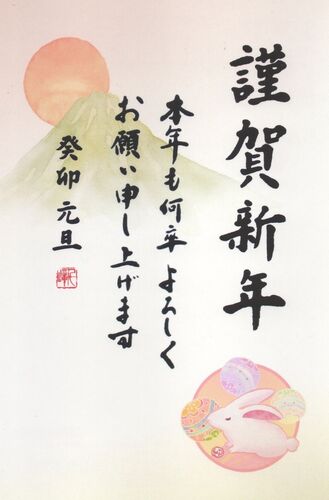 謹賀新年
本年も何卒よろしく
お願い申し上げます
癸卯元旦